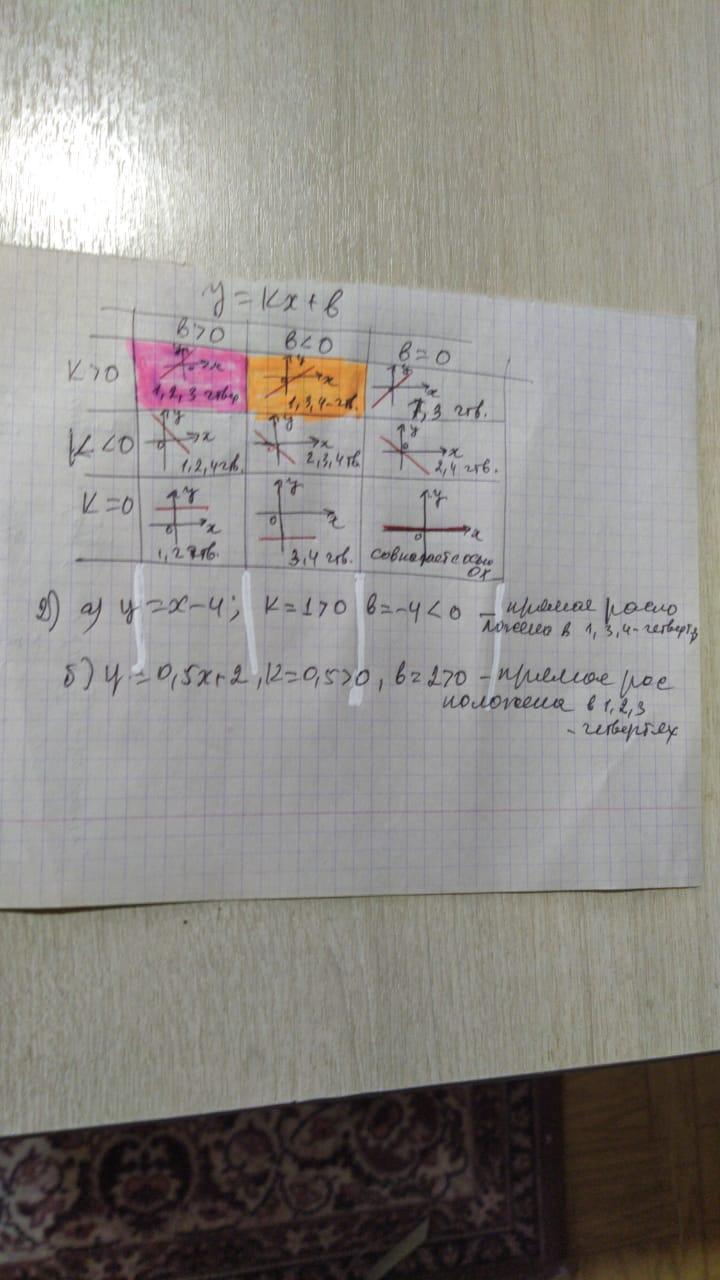 y = kx + b
b > 0 b < 0 b = 0
K > 0 y x 1, 2, 3 четвер y x 1, 3, 4 - чтв. y x 1, 3 чтв.
K < 0 y x 0 1, 2, 4 чтв. y x 0 2, 3, 4 чтв. y x 0 2, 4 чтв.
K = 0 y x 0 1, 2 чтв. y x 0 3, 4 чтв. y x 0 совпадает с осью
OX
2) а) y = x - 4; K = 1 > 0 b = -4 < 0 - прямая распо
ложена в 1, 3, 4 - четверт
б) y = 0,5x + 2, K = 0,5 > 0, b = 2 > 0 - прямая рас
положена в 1, 2, 3
- четвертях